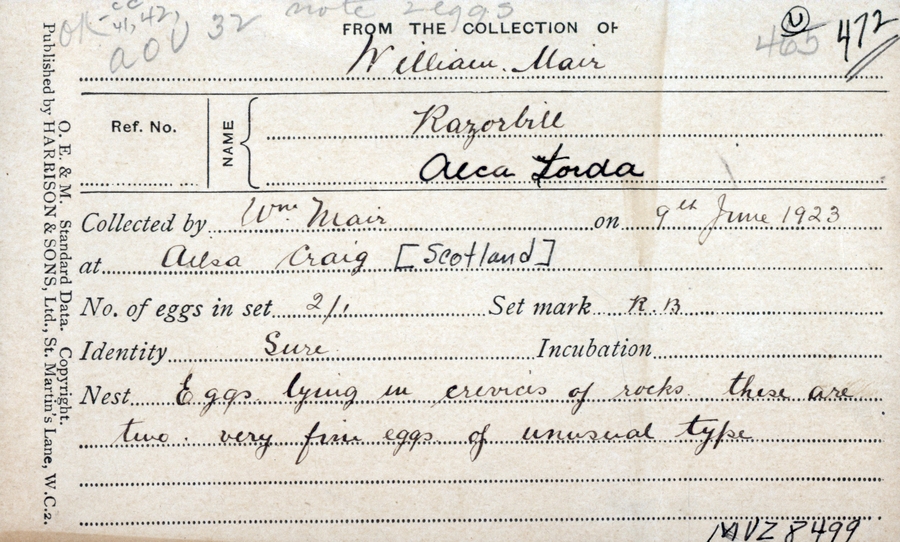 OK cc 41, 42, note 2 eggs
AOU 32
FROM THE COLLECTION OF
U 465 472
William Mair
Ref. No.
NAME
Razorbill
Alca Torda
Collected by Wm. Mair on 9th June 1923
at Ailsa Craig [Scotland]
No. of eggs in set 2/1 Set mark R.B
Identity Sure Incubation
Nest Eggs lying in crevices of rocks. these are
two very fine eggs of unusual type
MVZ 8499
O. E. & M. Standard Data. Copyright.
Published by HARRISON & SONS, Ltd., St. Martin's Lane, W.C.2.